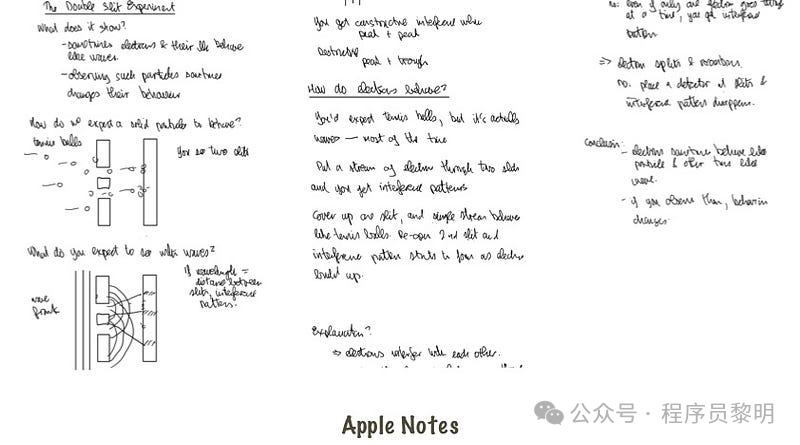 The Double Slit Experiment
What does it show?
- sometimes electrons & their ilk behave
like waves.
- observing such particles sometimes
changes their behaviour
How do we expect a solid particle to behave?
tennis balls
You see two slits
What do you expect to see with waves?
wave
front
If wavelength =
distance between
slits, interference
pattern.
You get constructive interference when
peak + peak
Destructive
peak + trough
How do electrons behave?
You'd expect tennis balls, but it's actually
waves — most of the time
Put a stream of electrons through two slits
and you get interference patterns
Cover up one slit, and single stream behaves
like tennis balls. Re-open 2nd slit and
interference pattern starts to form as electrons
build up.
Explanation?
⇒ electrons interfere with each other.
no: even if only one electron goes through
at a time, you get interference
pattern
⇒ electron splits & recombines.
no. place a detector at slits &
interference pattern disappears.
Conclusion:
- electrons sometimes behave like
particle & other times like
wave.
- if you observe them, behaviour
changes.
Apple Notes
公众号 · 程序员黎明